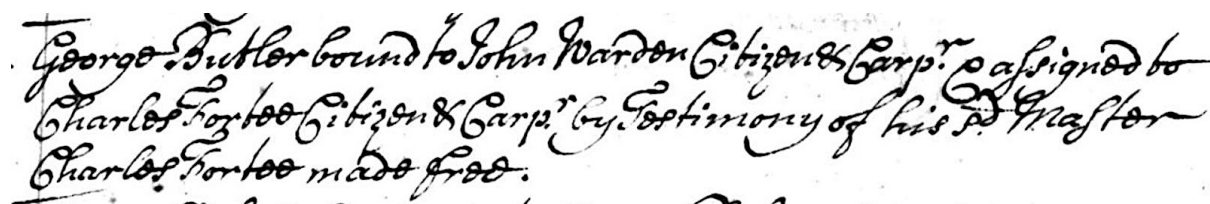 George Butler bound to John Warden Citizen & Carpr. & assigned to
Charles Fortee Citizen & Carpr. by Testimony of his sd. Master
Charles Fortee made free.